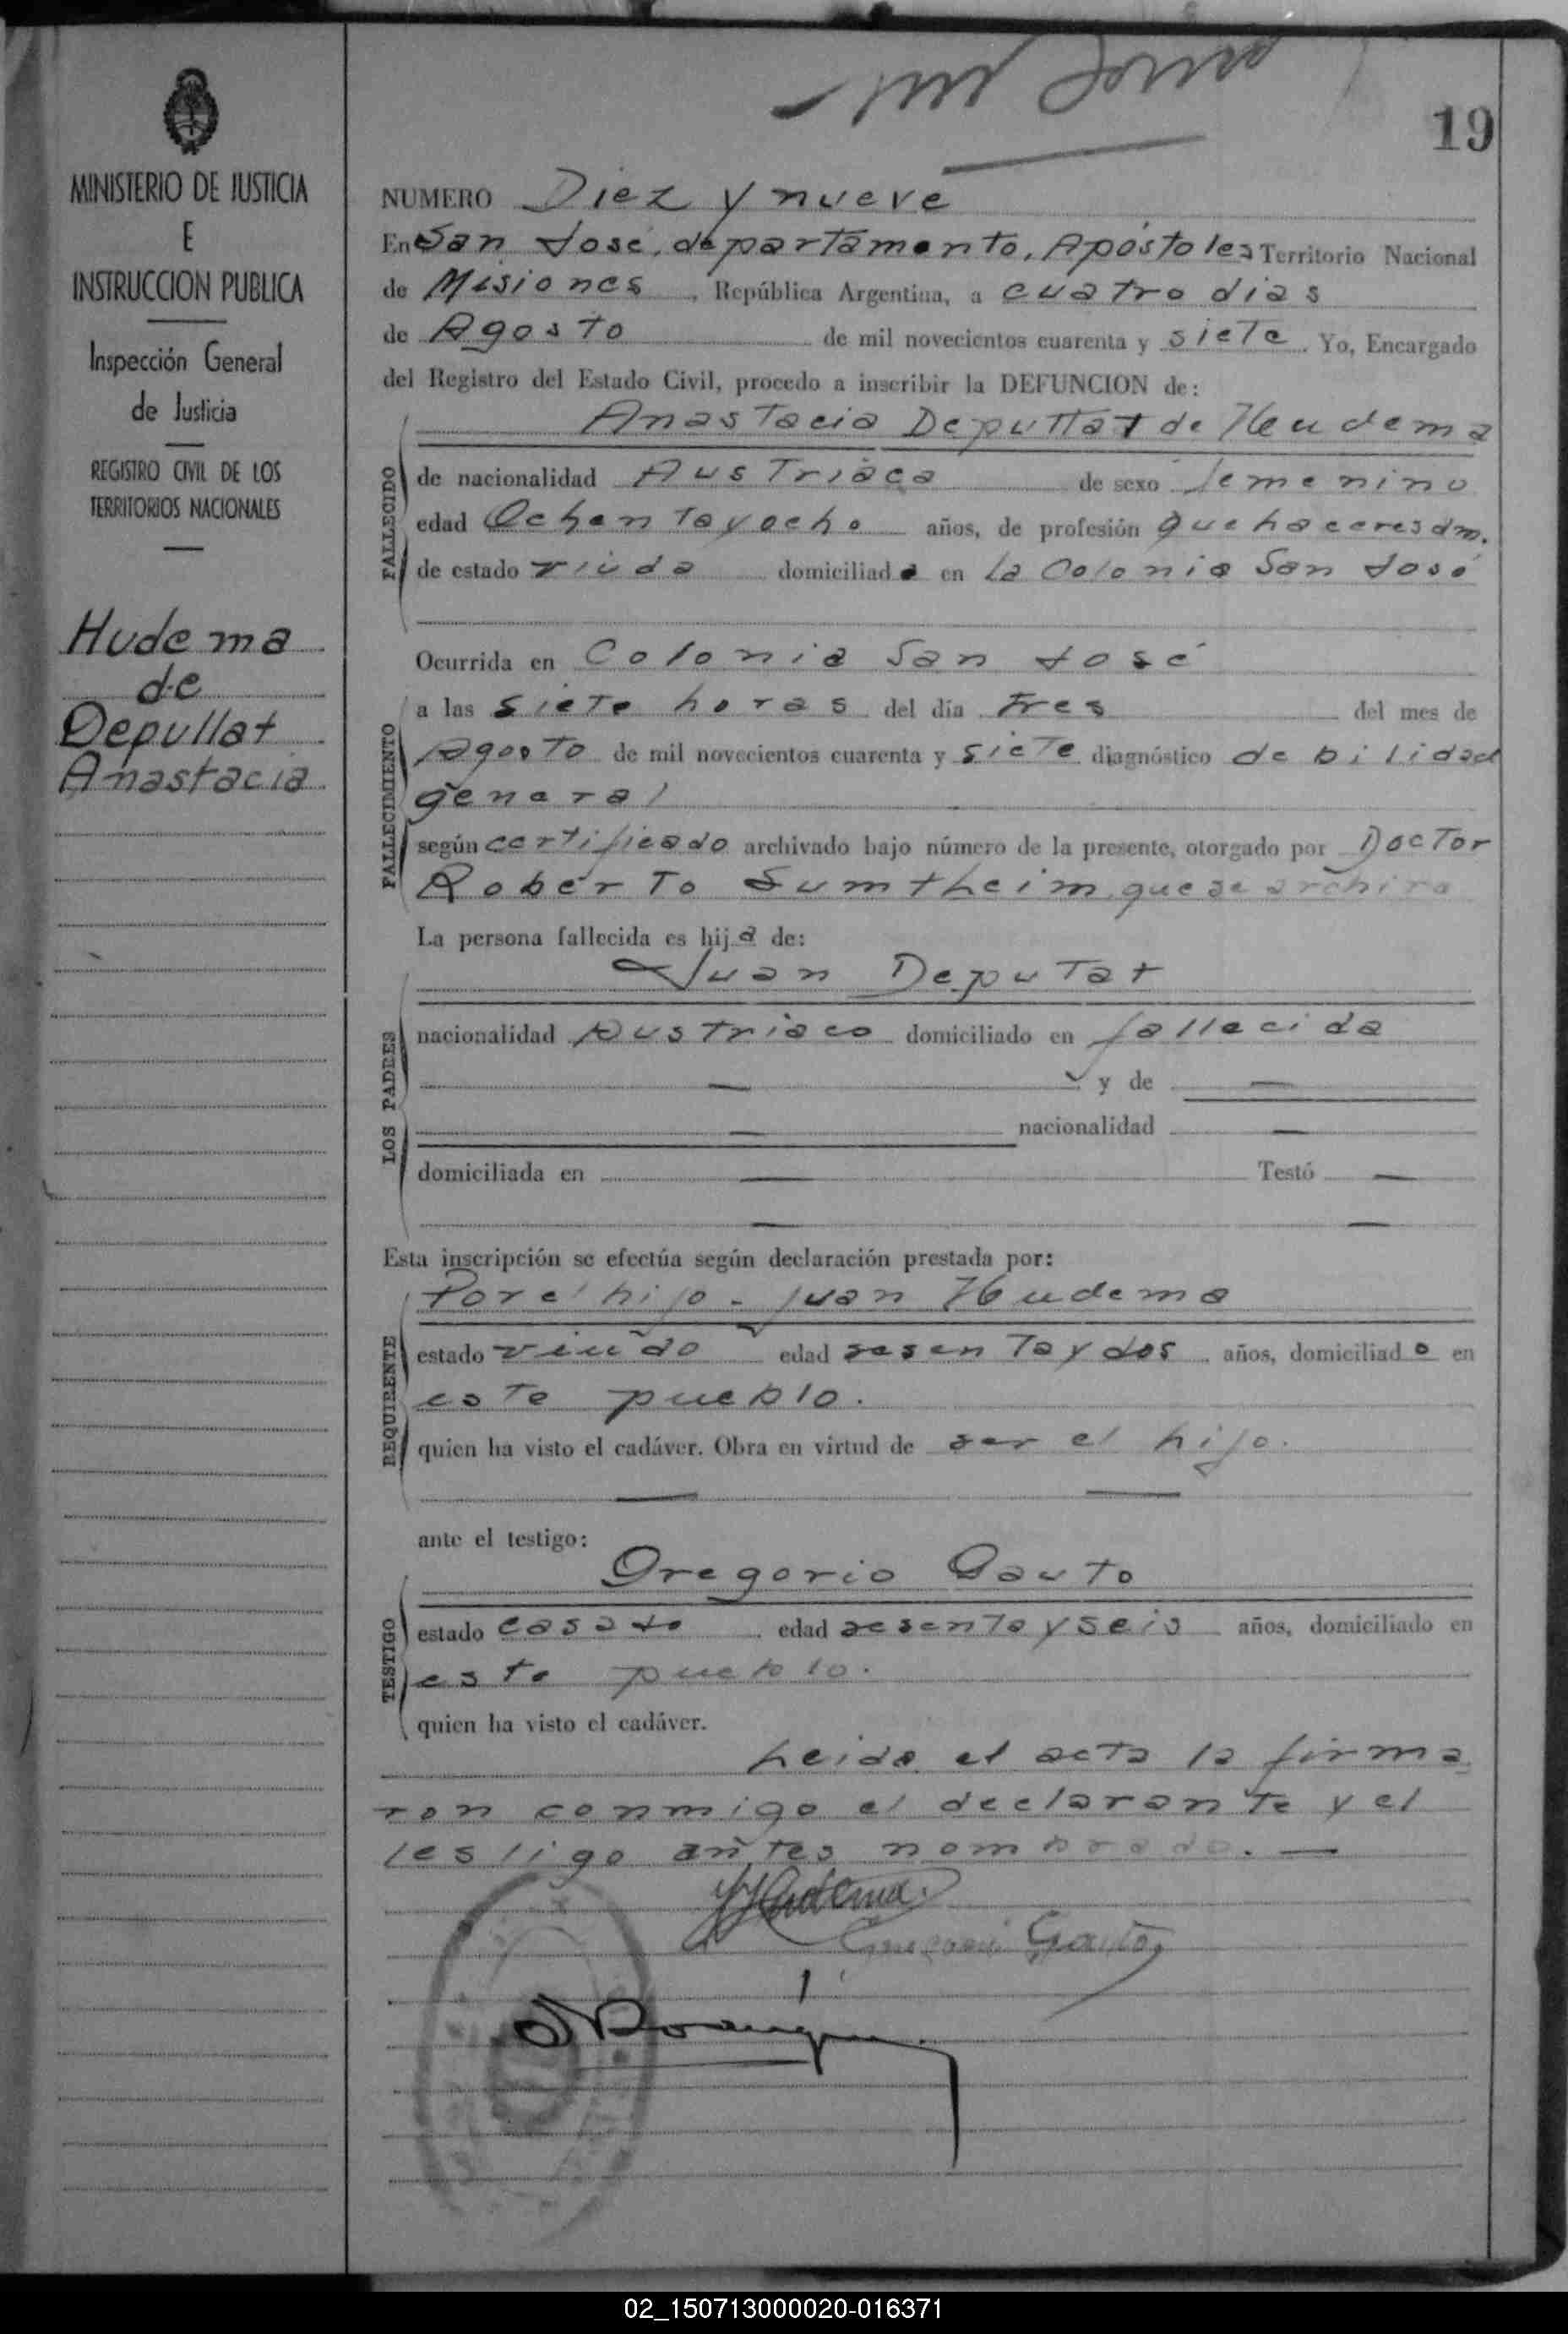 19
MINISTERIO DE JUSTICIA
E
INSTRUCCION PUBLICA
Inspección General
de Justicia
REGISTRO CIVIL DE LOS
TERRITORIOS NACIONALES
Hudema
de
Depullat
Anastacia
NUMERO Diez y nueve
En San José, departamento, Apóstoles Territorio Nacional
de Misiones, República Argentina, a cuatro dias
de Agosto de mil novecientos cuarenta y siete. Yo, Encargado
del Registro del Estado Civil, procedo a inscribir la DEFUNCION de:
Anastacia Deputtat de Heudema
FALLECIDO
de nacionalidad Austriaca de sexo femenino
edad Ochentayocho años, de profesión quehaceresdm.
de estado viuda domiciliada en la Colonia San José
Ocurrida en Colonia San José
FALLECIMIENTO
a las siete horas del día tres del mes de
Agosto de mil novecientos cuarenta y siete diagnóstico debilidad
general
según certificado archivado bajo número de la presente, otorgado por Doctor
Roberto Sumtheim, que se archiva
La persona fallecida es hija de:
Juan Deputat
LOS PADRES
nacionalidad Austriaco domiciliado en fallecida
— y de —
— nacionalidad —
domiciliada en — Testó —
— —
Esta inscripción se efectúa según declaración prestada por:
Por el hijo - Juan Heudema
REQUIRENTE
estado viudo edad sesentaydos años, domiciliado en
este pueblo.
quien ha visto el cadáver. Obra en virtud de ser el hijo.
— —
ante el testigo:
Gregorio Gauto
TESTIGO
estado casado edad sesentayseis años, domiciliado en
este pueblo.
quien ha visto el cadáver.
Leida el acta la firma
ron conmigo el declarante y el
testigo antes nombrado. —
Hudema.
Gauto
02_150713000020-016371